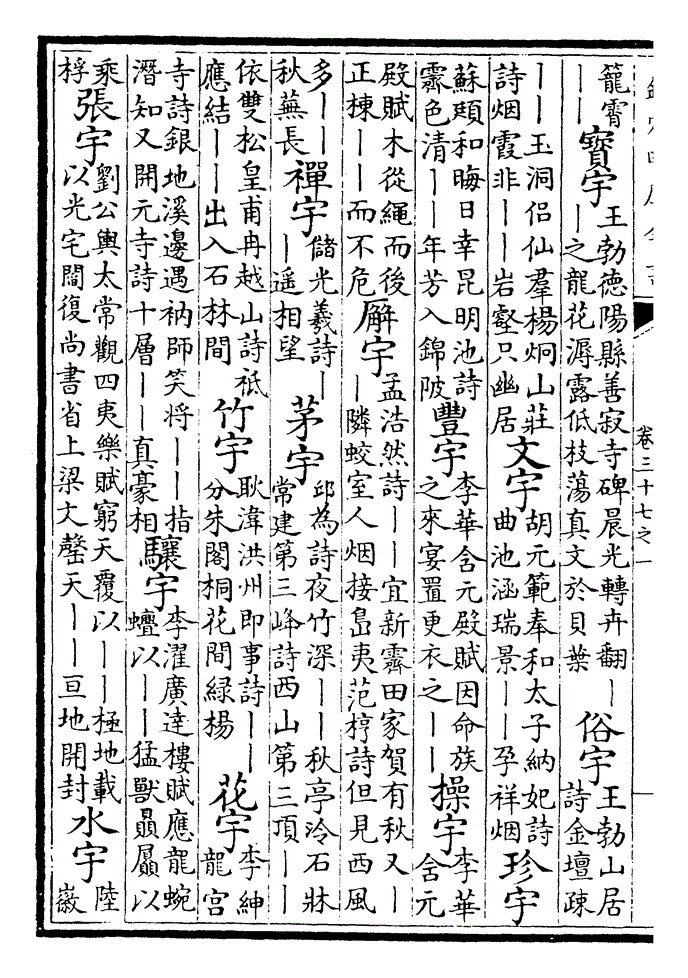 卷三十七之一
籠霄——寳宇王勃德陽縣善寂寺碑晨光轉卉翻——之龍花潯露低枝蕩真文於貝葉俗宇王勃山居詩金壇疎
——玉洞侣仙羣楊炯山莊詩烟霞非——岩壑只幽居文宇胡元範奉和太子納妃詩曲池涵瑞景——孕祥烟珍宇
蘇頲和晦日幸昆明池詩霽色清——年芳入錦陂豐宇李華含元殿賦因命族之來宴置更衣之——操宇李華含元
殿賦木從繩而後正棟——而不危廨宇孟浩然詩——宜新霽田家賀有秋又——隣蛟室人烟接島夷范梈詩但見西風
多——秋蕪長禪宇儲光羲詩——遥相望茅宇邱為詩夜竹深——秋亭冷石牀常建第三峰詩西山第三頂——
依雙松皇甫冉越山詩祇應結——出入石林間竹宇耿湋洪州即事詩——分朱閣桐花間緑楊花宇李紳龍宫
寺詩銀地溪邊遇衲師笑将——指潛知又開元寺詩十層——真豪相驤宇李濯廣達樓賦應龍蜿蟺以——猛獸贔屭以
乘桴張宇劉公輿太常觀四夷樂賦窮天覆以——極地載以光宅闡復尚書省上梁文罄天——亘地開封水宇陸徽